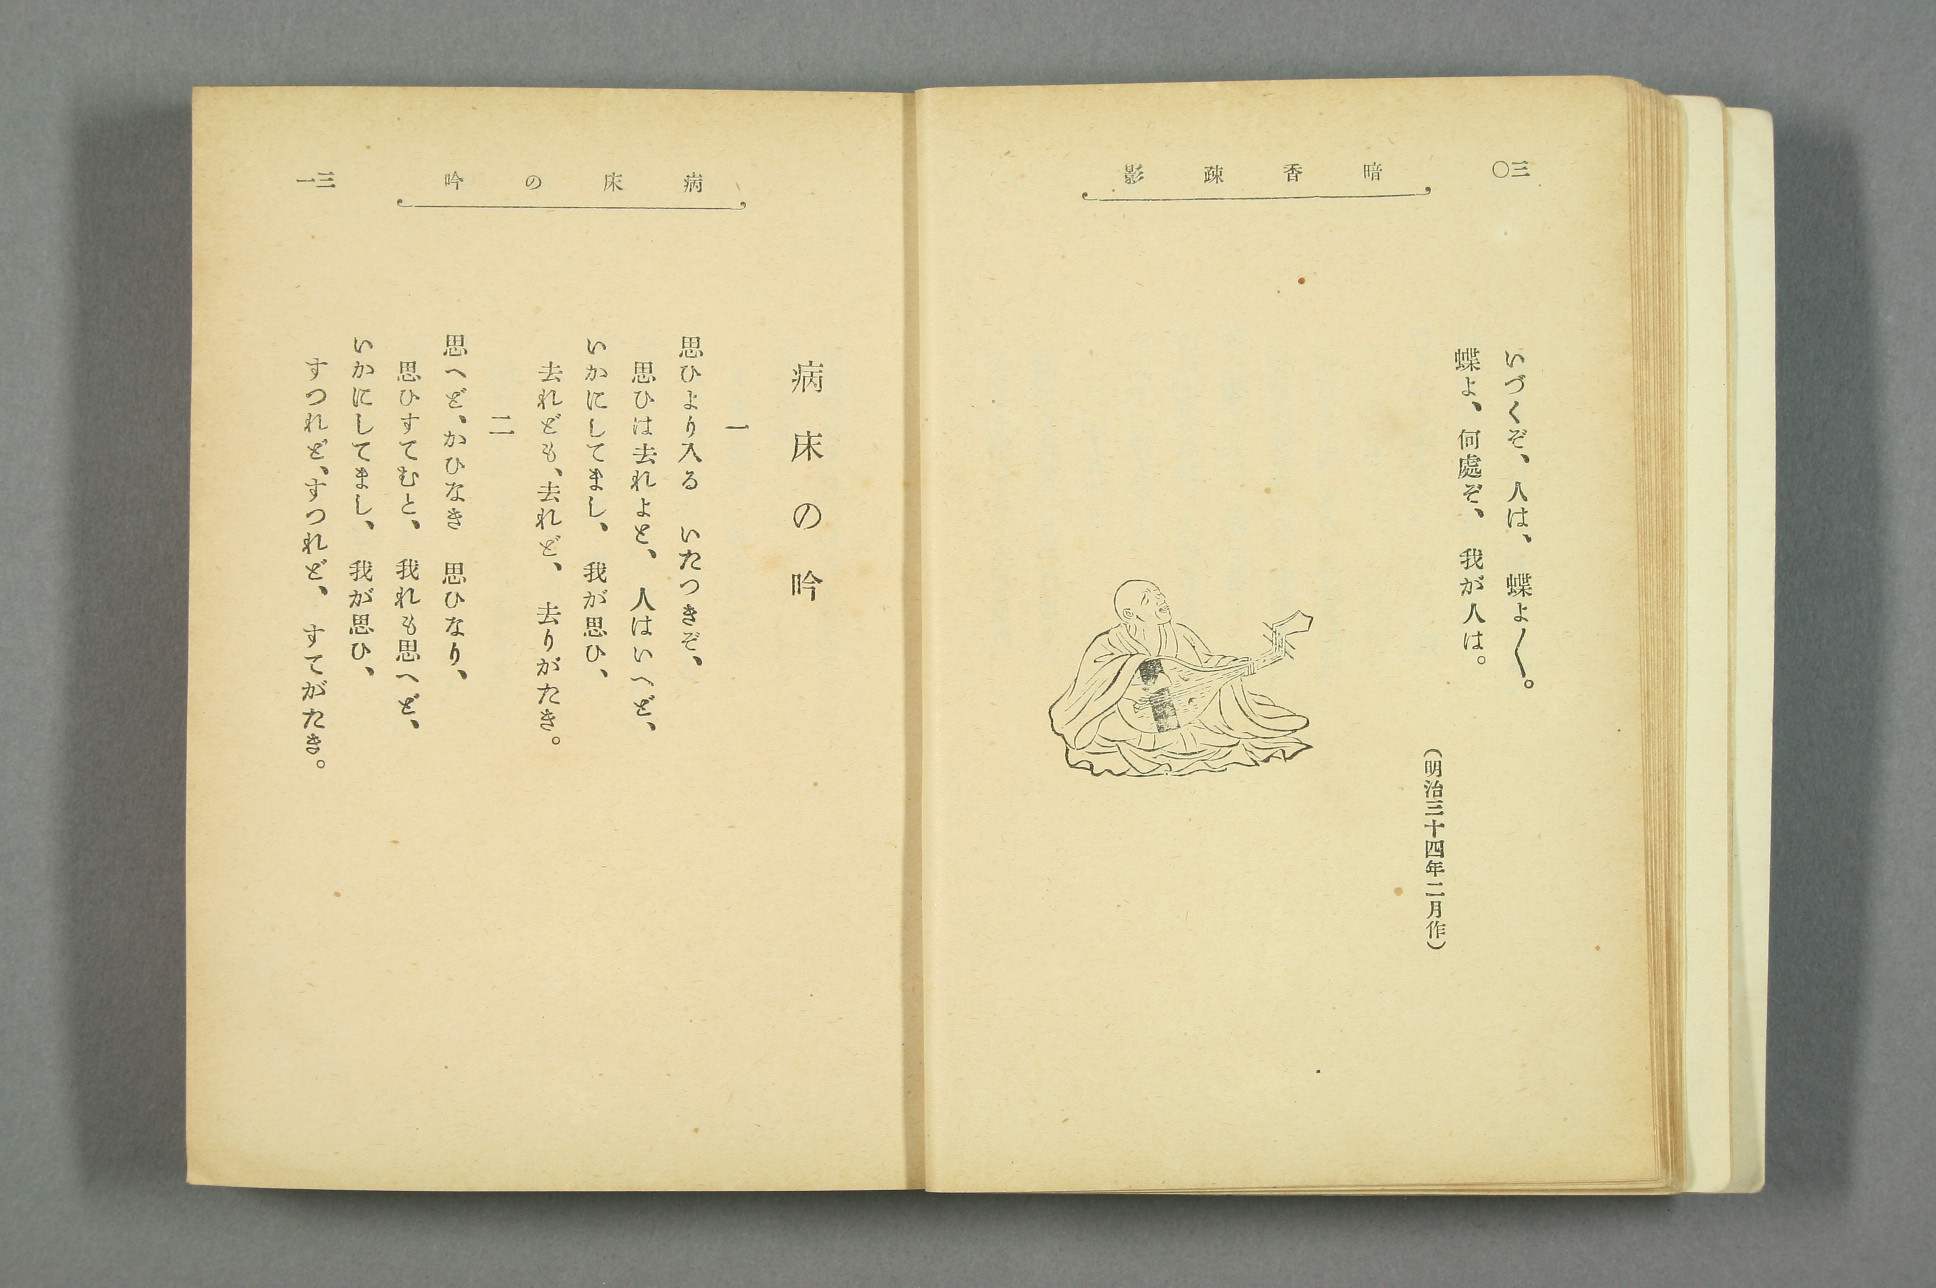 三〇
暗香疎影
いづくぞ、人は、蝶よ〳〵。
蝶よ、何處ぞ、我が人は。
(明治三十四年二月作)
病床の吟
三一
病床の吟
一
思ひより入る　いたつきぞ、
思ひは去れよと、人はいへど、
いかにしてまし、我が思ひ、
去れども、去れど、去りがたき。
二
思へど、かひなき　思ひなり、
思ひすてむと、我れも思へど、
いかにしてまし、我が思ひ、
すつれど、すつれど、すてがたき。